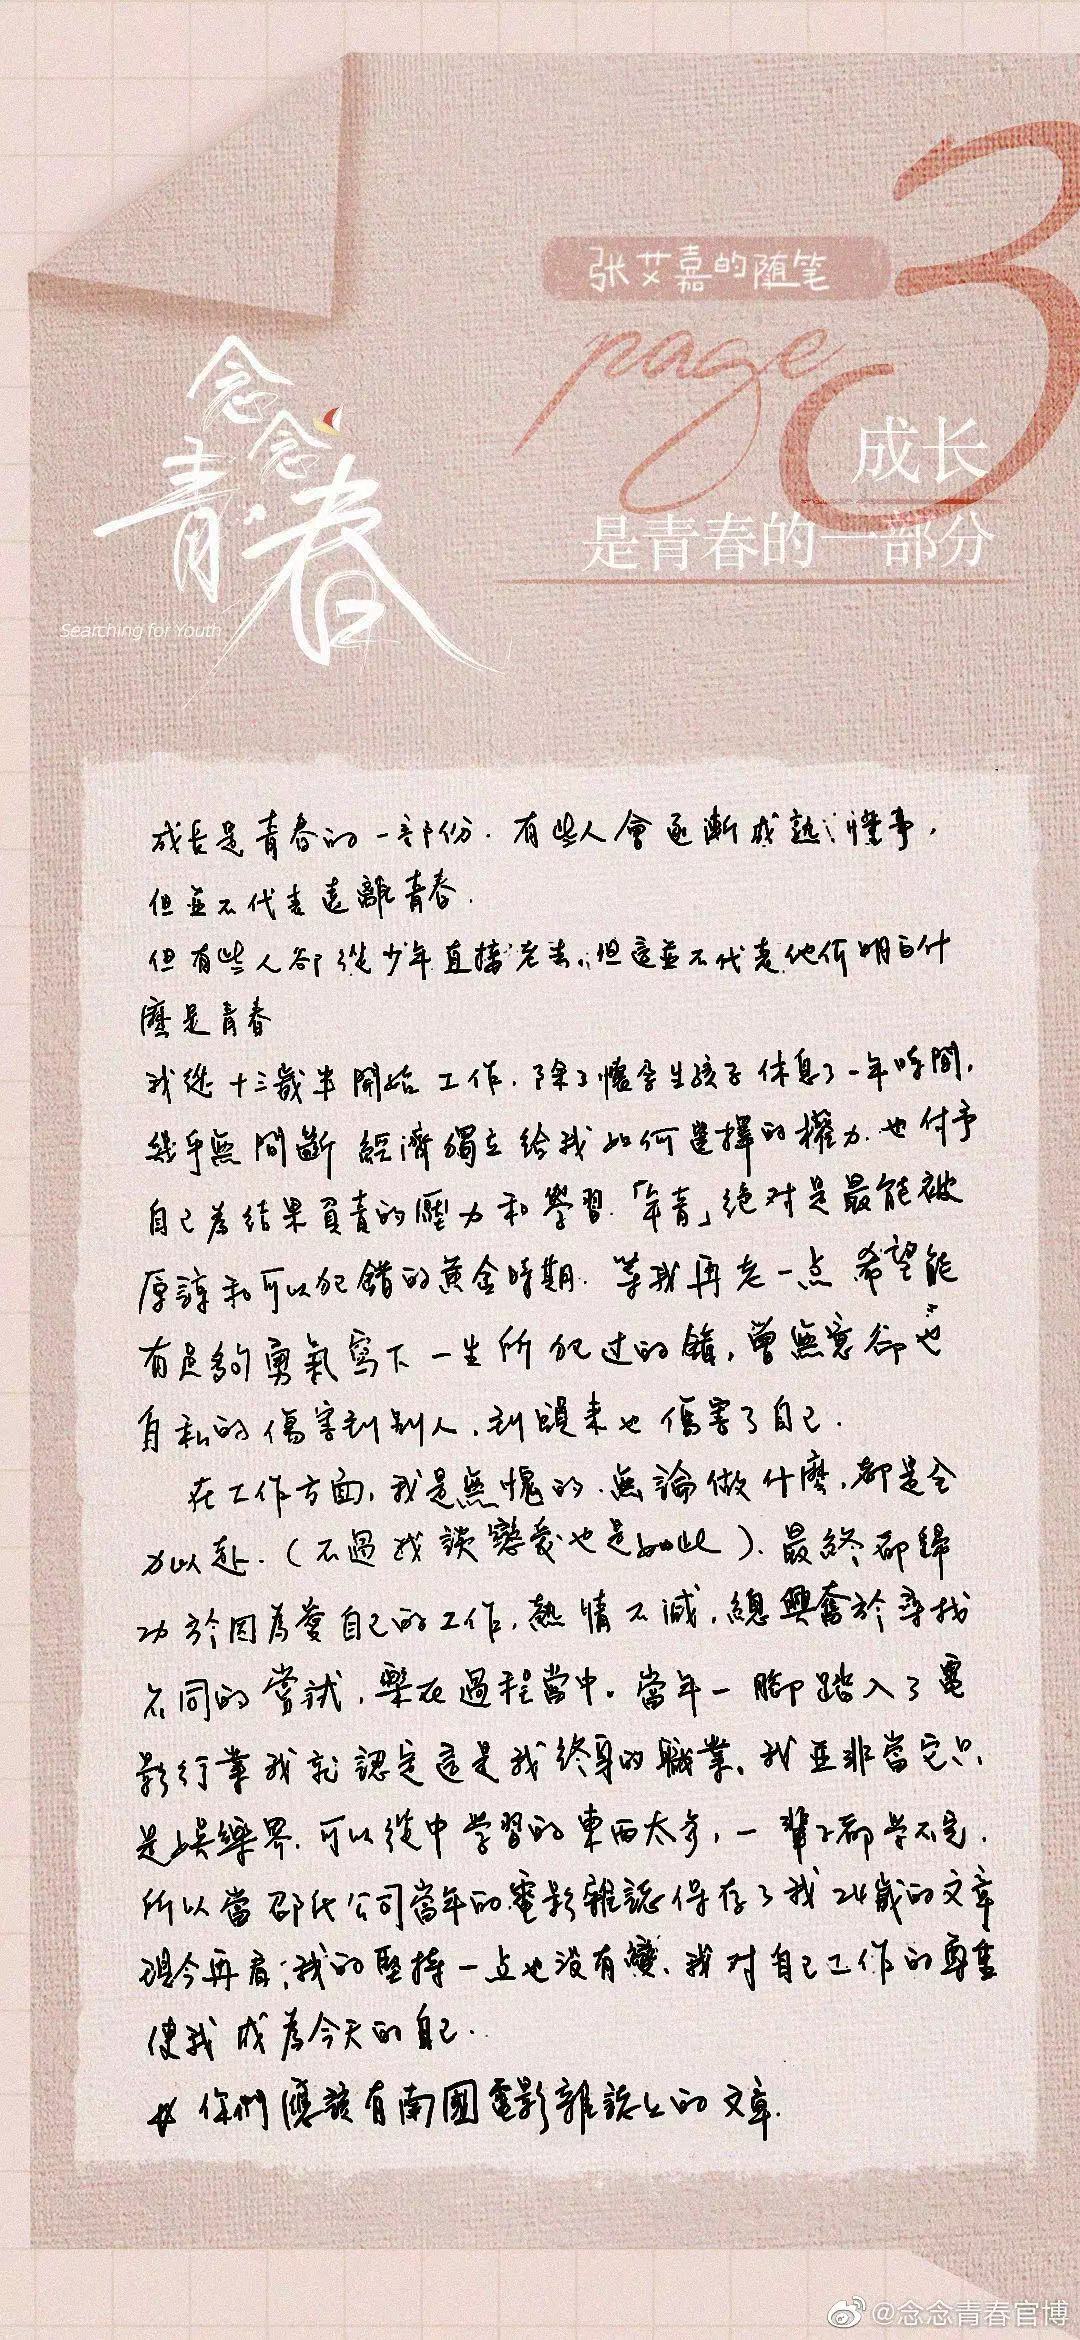 张艾嘉的随笔
page 3
念念
青春
Searching for Youth
成长
是青春的一部分
成長是青春的一部份.有些人會逐漸成熟;懂事,
但並不代表遠離青春.
但有些人卻從少年直接老去,但這並不代表他們明白什
麼是青春
我從十三歲半開始工作.除了懷孕生孩子休息了一年時間,
幾乎無間斷 經濟獨立給我如何選擇的權力.也付予
自己為結果負責的壓力和學習.「年青」绝对是最能被
原諒和可以犯錯的黃金時期.等我再老一点 希望能
有足夠勇氣寫下一生所犯过的錯,曾無意卻也
自私的傷害到别人,到頭來也傷害了自己.
在工作方面,我是無愧的.無論做什麼,都是全
力以赴.(不過我談戀愛也是如此).最終都歸
功於因為愛自己的工作,熱情不減,總興奮於尋找
不同的嘗試,樂在過程當中。當年一腳踏入了電
影行業我就認定這是我終身的職業、我並非當它只
是娛樂界.可以從中学習的東西太多,一輩子都学不完.
所以當邵氏公司當年的電影雜誌保存了我24歲的文章
現今再看;我的堅持一点也没有變、我对自己工作的尊重
使我成為今天的自己..
你們應該有南國電影雜誌上的文章.
@念念青春官博